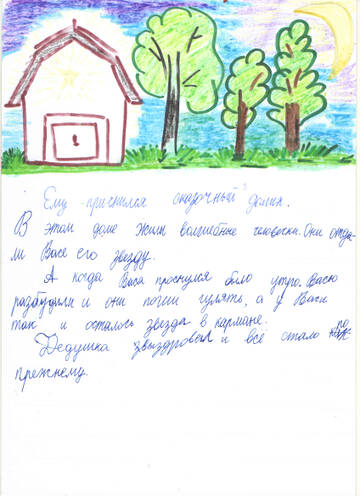 Ему приснился сказочный домик.
В этом доме жили волшебные человечки. Они отда-
ли Васе его звезду.
А когда Вася проснулся было утро. Васю
разбудили и они пошли гулять, а у Васи
так и осталось звезда в кармане.
Дедушка выздоровел и всё стало по
прежнему.